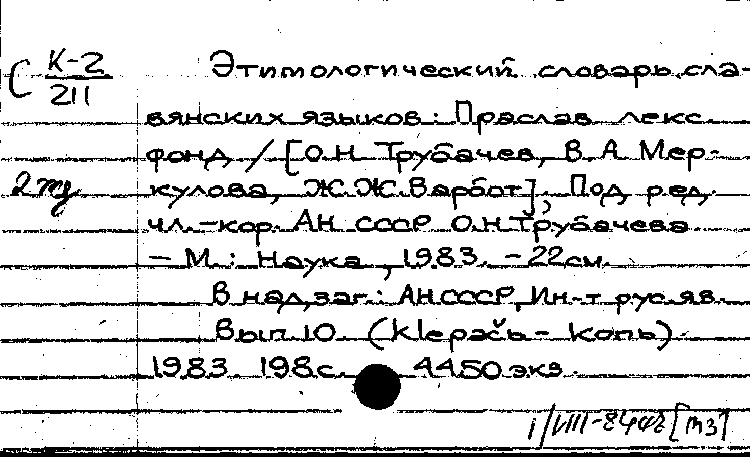 С К-2
211
Этимологический словарь сла-
вянских языков: Праслав лекс.
фонд / [О.Н. Трубачев, В. А Мер-
кулова, Ж.Ж.Варбот]; Под ред.
чл.-кор. АН СССР О.Н.Трубачева
– М.: Наука, 1983. – 22см.
В надзаг.: АН СССР, Ин-т рус.яз.
Вып.10. (Klepačь – Konь).
1983. 198с. 4450 экз.